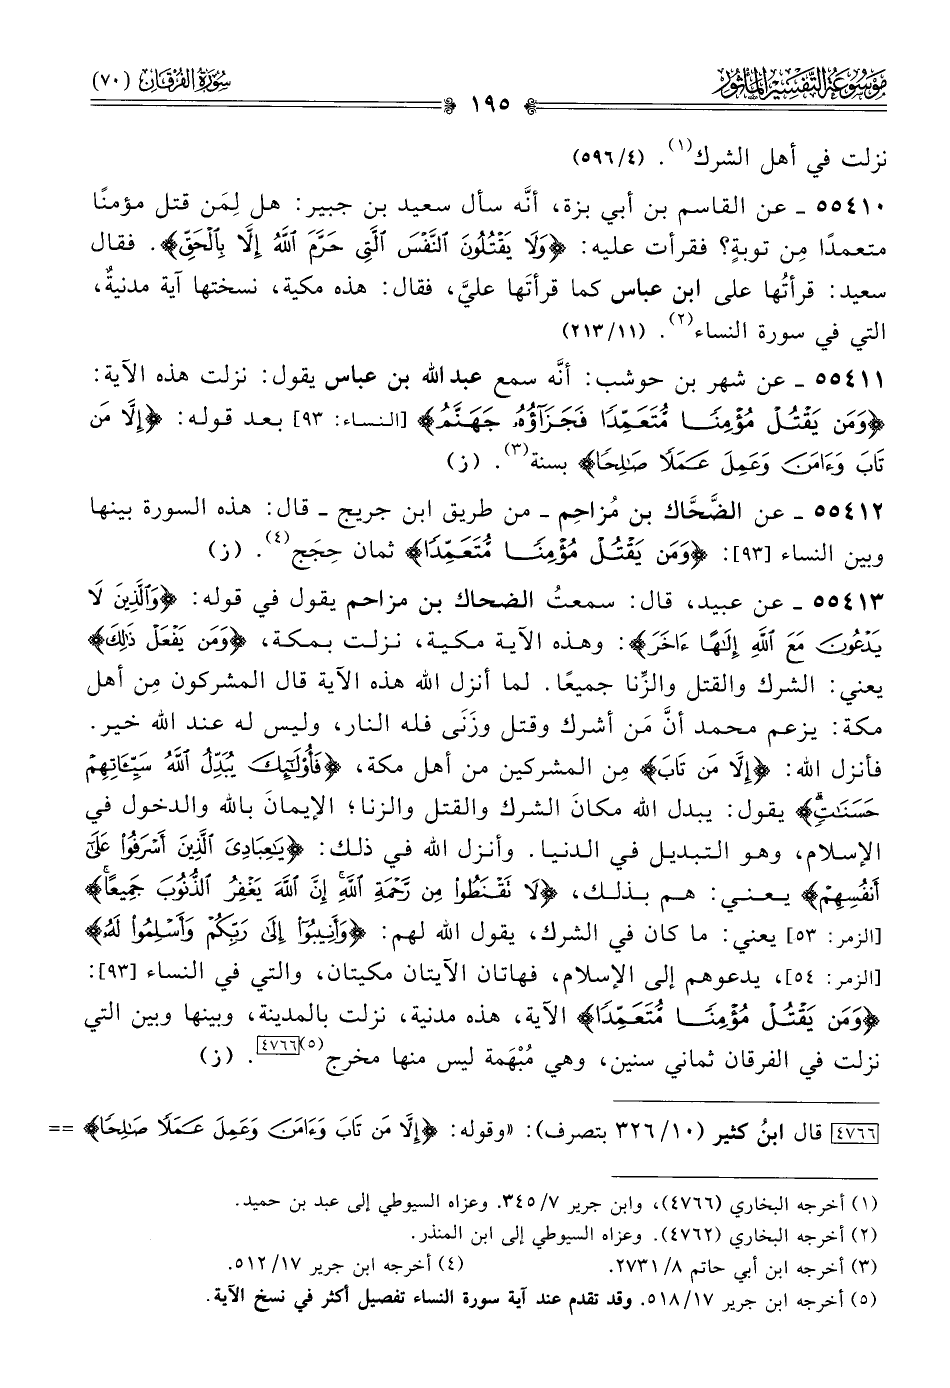 موسوعة التفسير المأثور
سورة الفرقان (٧٠)
١٩٥
نزلت في أهل الشرك(١). (٥٩٦/٤)
٥٥٤١٠ ـ عن القاسم بن أبي بزة، أنَّه سأل سعيد بن جبير: هل لِمَن قتل مؤمنًا
متعمدًا مِن توبةٍ؟ فقرأت عليه: ﴿وَلَا يَقْتُلُونَ ٱلنَّفْسَ ٱلَّتِي حَرَّمَ ٱللَّهُ إِلَّا بِٱلْحَقِّ﴾. فقال
سعيد: قرأتُها على ابن عباس كما قرأتَها عليَّ، فقال: هذه مكية، نسختها آية مدنيةٌ،
التي في سورة النساء(٢). (٢١٣/١١)
٥٥٤١١ ـ عن شهر بن حوشب: أنَّه سمع عبد الله بن عباس يقول: نزلت هذه الآية:
﴿وَمَن يَقْتُلْ مُؤْمِنًا مُّتَعَمِّدًا فَجَزَآؤُهُۥ جَهَنَّمُ﴾ [النساء: ٩٣] بعد قوله: ﴿إِلَّا مَن
تَابَ وَءَامَنَ وَعَمِلَ عَمَلًا صَٰلِحًا﴾ بسنة(٣). (ز)
٥٥٤١٢ ـ عن الضَّحَّاك بن مُزاحِم ـ من طريق ابن جريج ـ قال: هذه السورة بينها
وبين النساء [٩٣]: ﴿وَمَن يَقْتُلْ مُؤْمِنًا مُّتَعَمِّدًا﴾ ثمان حِجَج(٤). (ز)
٥٥٤١٣ ـ عن عبيد، قال: سمعتُ الضحاك بن مزاحم يقول في قوله: ﴿وَٱلَّذِينَ لَا
يَدْعُونَ مَعَ ٱللَّهِ إِلَٰهًا ءَاخَرَ﴾: وهذه الآية مكية، نزلت بمكة، ﴿وَمَن يَفْعَلْ ذَٰلِكَ﴾
يعني: الشرك والقتل والزِّنا جميعًا. لما أنزل الله هذه الآية قال المشركون مِن أهل
مكة: يزعم محمد أنَّ مَن أشرك وقتل وزَنَى فله النار، وليس له عند الله خير.
فأنزل الله: ﴿إِلَّا مَن تَابَ﴾ مِن المشركين من أهل مكة، ﴿فَأُوْلَٰٓئِكَ يُبَدِّلُ ٱللَّهُ سَيِّـَٔاتِهِمْ
حَسَنَٰتٍ﴾ يقول: يبدل الله مكانَ الشرك والقتل والزنا؛ الإيمانَ بالله والدخول في
الإسلام، وهو التبديل في الدنيا. وأنزل الله في ذلك: ﴿يَٰعِبَادِىَ ٱلَّذِينَ أَسْرَفُوا۟ عَلَىٰٓ
أَنفُسِهِمْ﴾ يعني: هم بذلك، ﴿لَا تَقْنَطُوا۟ مِن رَّحْمَةِ ٱللَّهِ إِنَّ ٱللَّهَ يَغْفِرُ ٱلذُّنُوبَ جَمِيعًا﴾
[الزمر: ٥٣] يعني: ما كان في الشرك، يقول الله لهم: ﴿وَأَنِيبُوٓا۟ إِلَىٰ رَبِّكُمْ وَأَسْلِمُوا۟ لَهُۥ﴾
[الزمر: ٥٤]، يدعوهم إلى الإسلام، فهاتان الآيتان مكيتان، والتي في النساء [٩٣]:
﴿وَمَن يَقْتُلْ مُؤْمِنًا مُّتَعَمِّدًا﴾ الآية، هذه مدنية، نزلت بالمدينة، وبينها وبين التي
نزلت في الفرقان ثماني سنين، وهي مُبْهَمة ليس منها مخرج(٥)[٤٧٦٦]. (ز)
[٤٧٦٦] قال ابنُ كثير (٣٢٦/١٠ بتصرف): «وقوله: ﴿إِلَّا مَن تَابَ وَءَامَنَ وَعَمِلَ عَمَلًا صَٰلِحًا﴾ ==
(١) أخرجه البخاري (٤٧٦٦)، وابن جرير ٣٤٥/٧. وعزاه السيوطي إلى عبد بن حميد.
(٢) أخرجه البخاري (٤٧٦٢). وعزاه السيوطي إلى ابن المنذر.
(٣) أخرجه ابن أبي حاتم ٢٧٣١/٨. (٤) أخرجه ابن جرير ٥١٢/١٧.
(٥) أخرجه ابن جرير ٥١٨/١٧. وقد تقدم عند آية سورة النساء تفصيل أكثر في نسخ الآية.